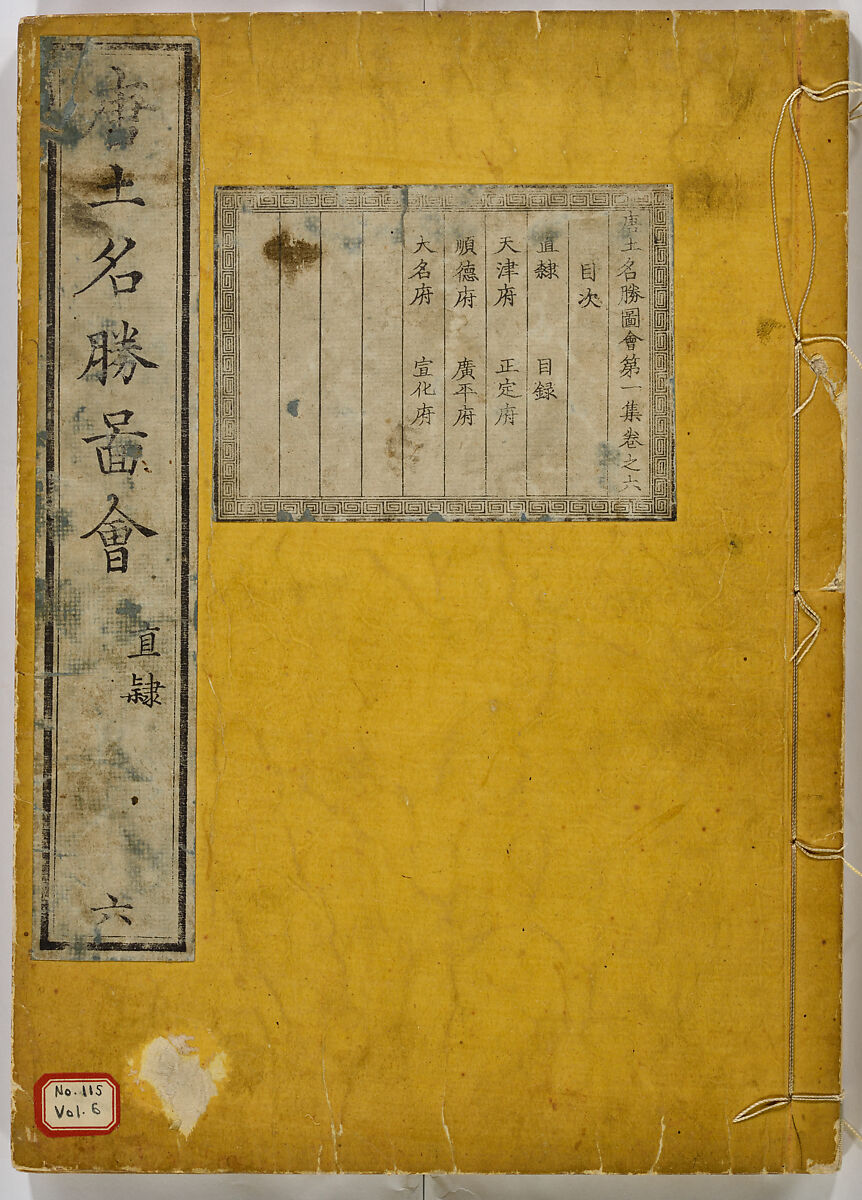 唐土名勝啚會
直隸
六
唐土名勝圖會第一集卷之六
目次
直隸 目録
天津府 正定府
順德府 廣平府
大名府 宣化府
No. 115
Vol. 6